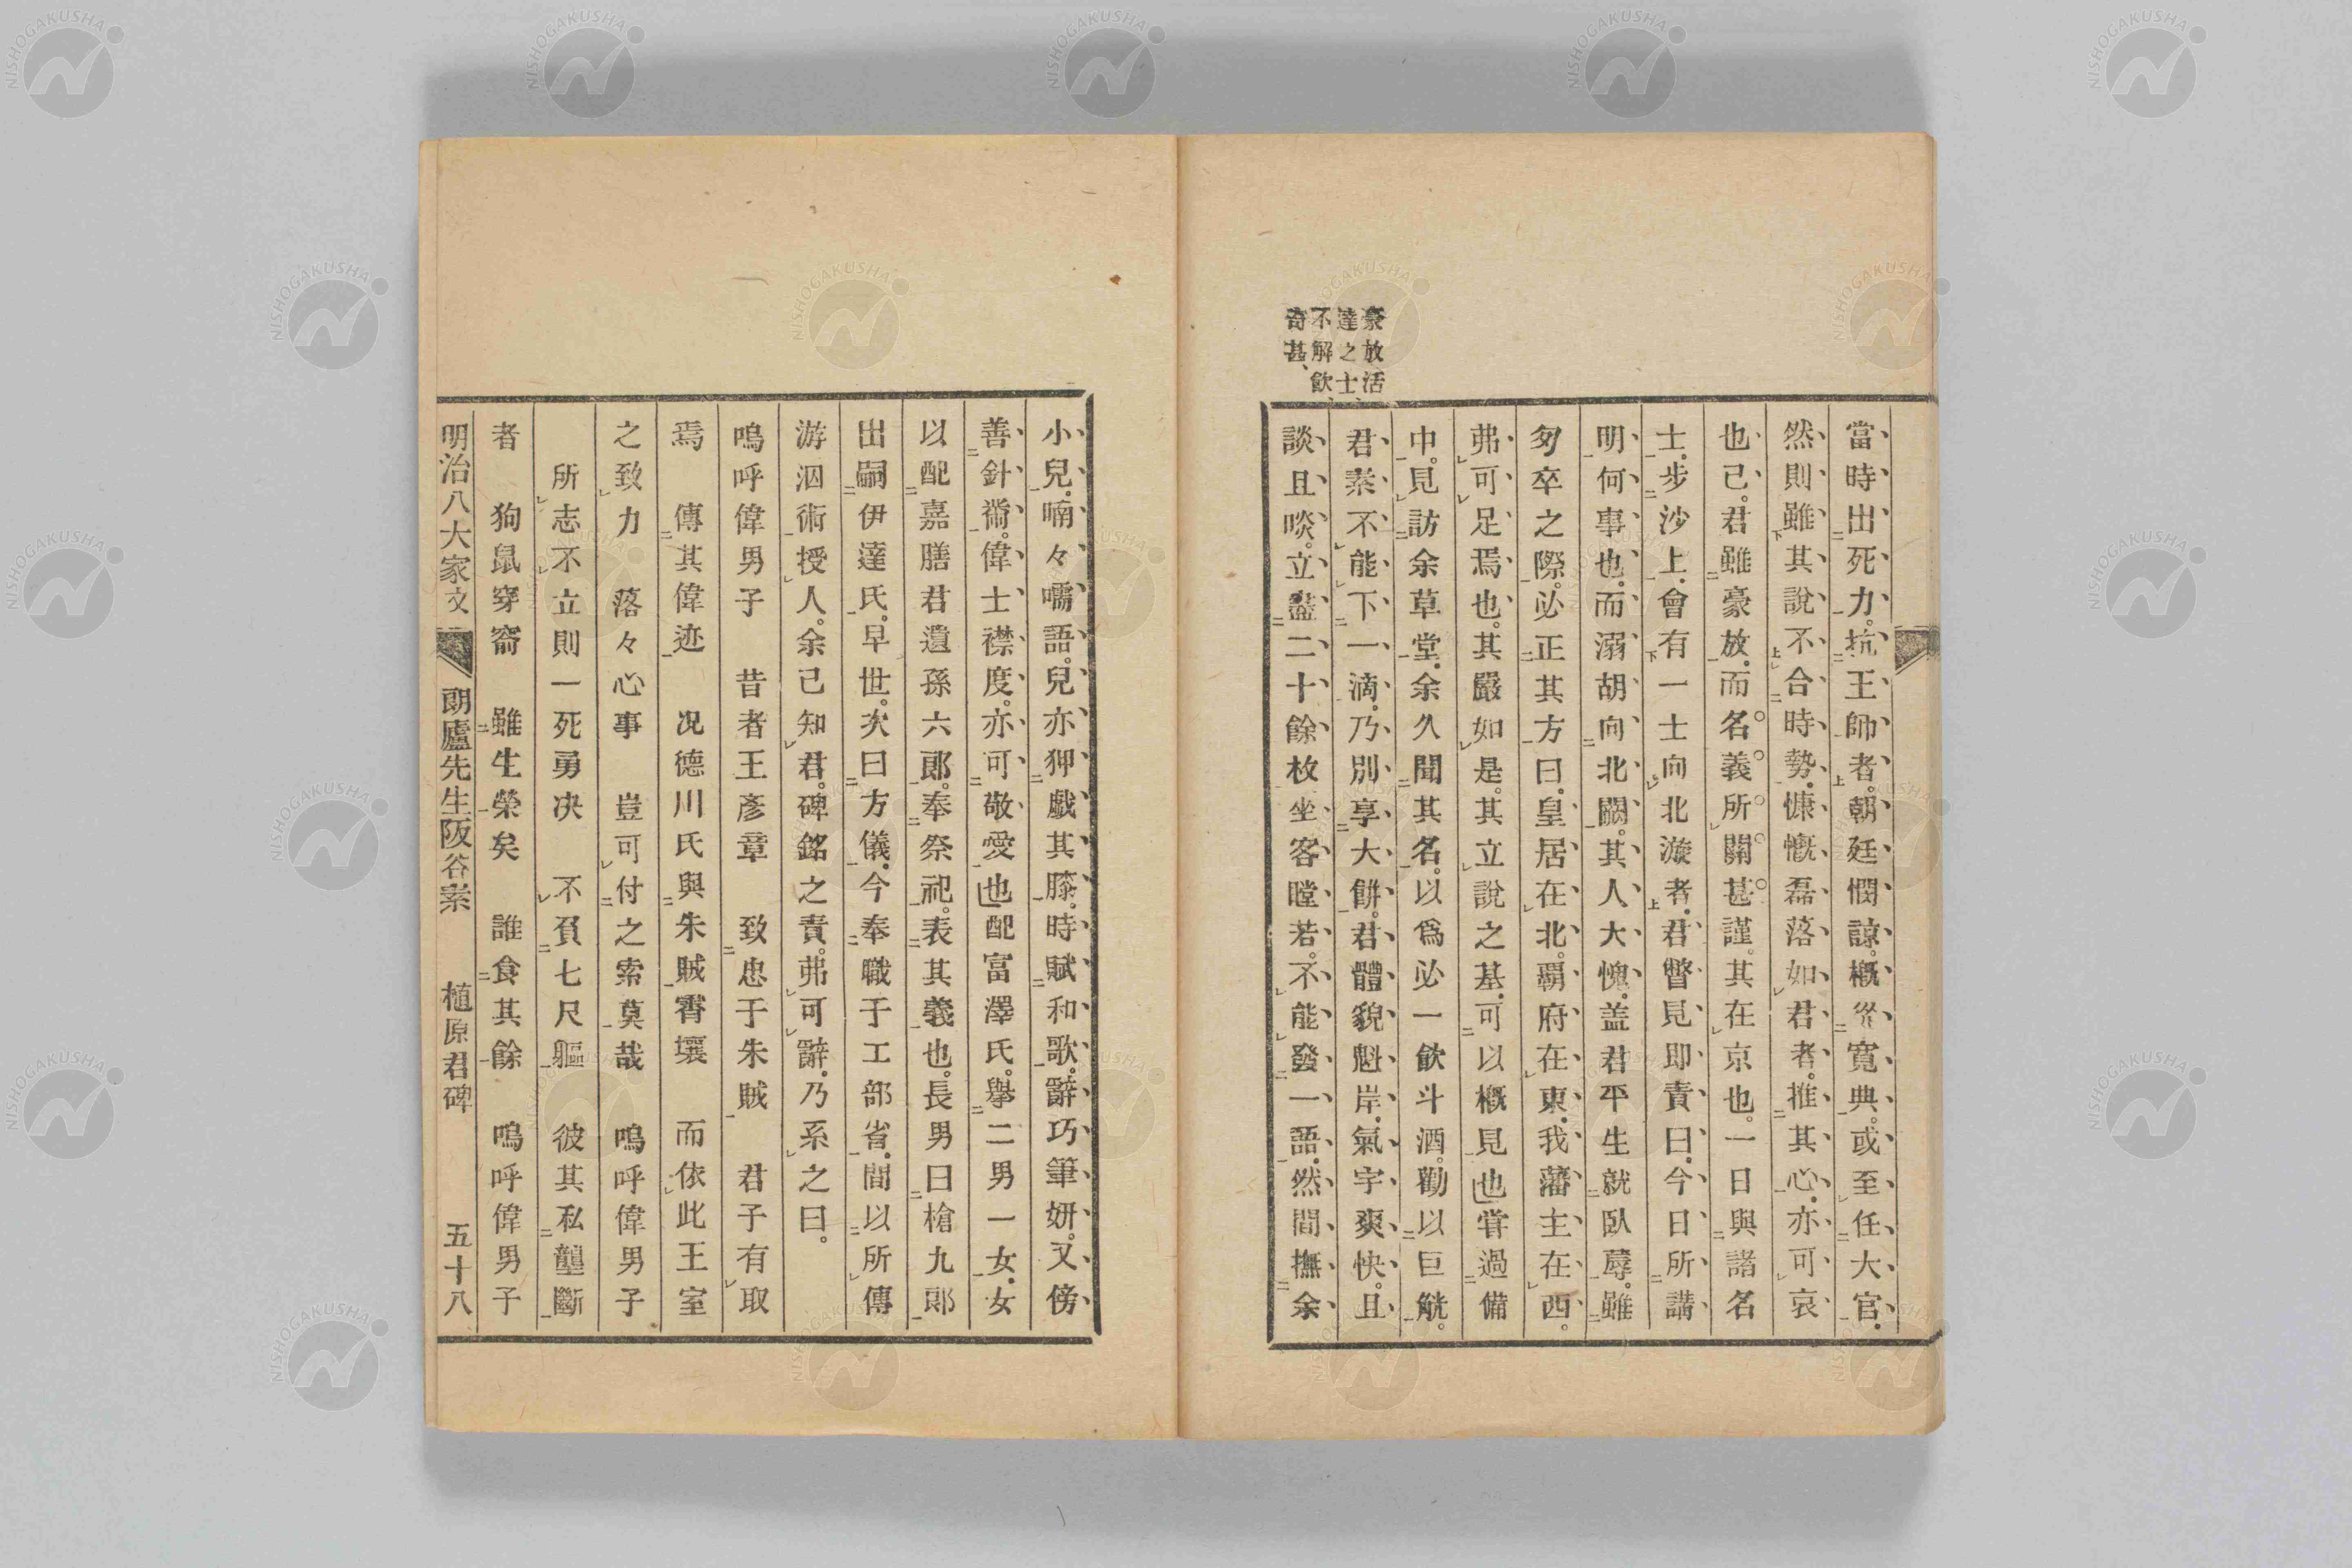 當時出死力。抗王師者。朝廷憫諒。概從寬典。或至任大官。
然則雖其說不合時勢。慷慨磊落如君者。推其心。亦可哀
也已。君雖豪放。而名義所關甚謹。其在京也。一日與諸名
士。步沙上。會有一士向北漩者。君瞥見即責曰。今日所講
明何事也。而溺胡向北闕。其人大愧。盖君平生就臥蓐。雖
匆卒之際。必正其方曰。皇居在北。覇府在東。我藩主在西。
弗可足焉也。其嚴如是。其立說之基。可以概見也嘗過備
中。見訪余草堂。余久聞其名。以爲必一飲斗酒。勸以巨觥。
君素不能下一滴。乃別享大餅。君體貌魁岸。氣宇爽快。且
談且啖。立盡二十餘枚坐客瞠若。不能發一語。然間撫余
豪放活
達之士、
不解飲、
奇甚、
小兒。喃々嚅語。兒亦狎戲其膝。時賦和歌。辭巧筆妍。又傍
善針術。偉士襟度。亦可敬愛也配富澤氏。擧二男一女。女
以配嘉膳君遺孫六郞。奉祭祀。表其義也。長男曰槍九郞
出嗣伊達氏。早世。次曰方儀。今奉職于工部省。間以所傳
游泅術授人。余已知君。碑銘之責。弗可辭。乃系之曰。
嗚呼偉男子 昔者王彥章 致忠于朱賊 君子有取
焉 傳其偉迹 况德川氏與朱賊霄壤 而依此王室
之致力 落々心事 豈可付之索莫哉 嗚呼偉男子
所志不立則一死勇決 不負七尺軀 彼其私壟斷
者 狗鼠穿窬 雖生榮矣 誰食其餘 嗚呼偉男子
明治八大家文 朗廬先生阪谷素 植原君碑 五十八
NISHOGAKUSHA